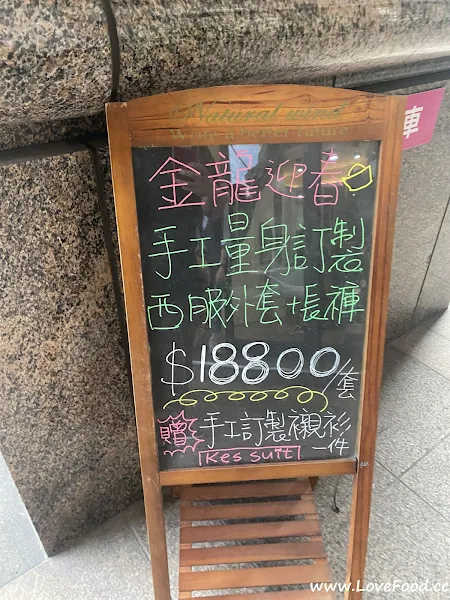 Natural wind
金龍迎春
手工量身訂製
西服外套+長褲
$18800/套
贈 手工訂製襯衫一件
Kes suit
車
www.LoveFood.cc